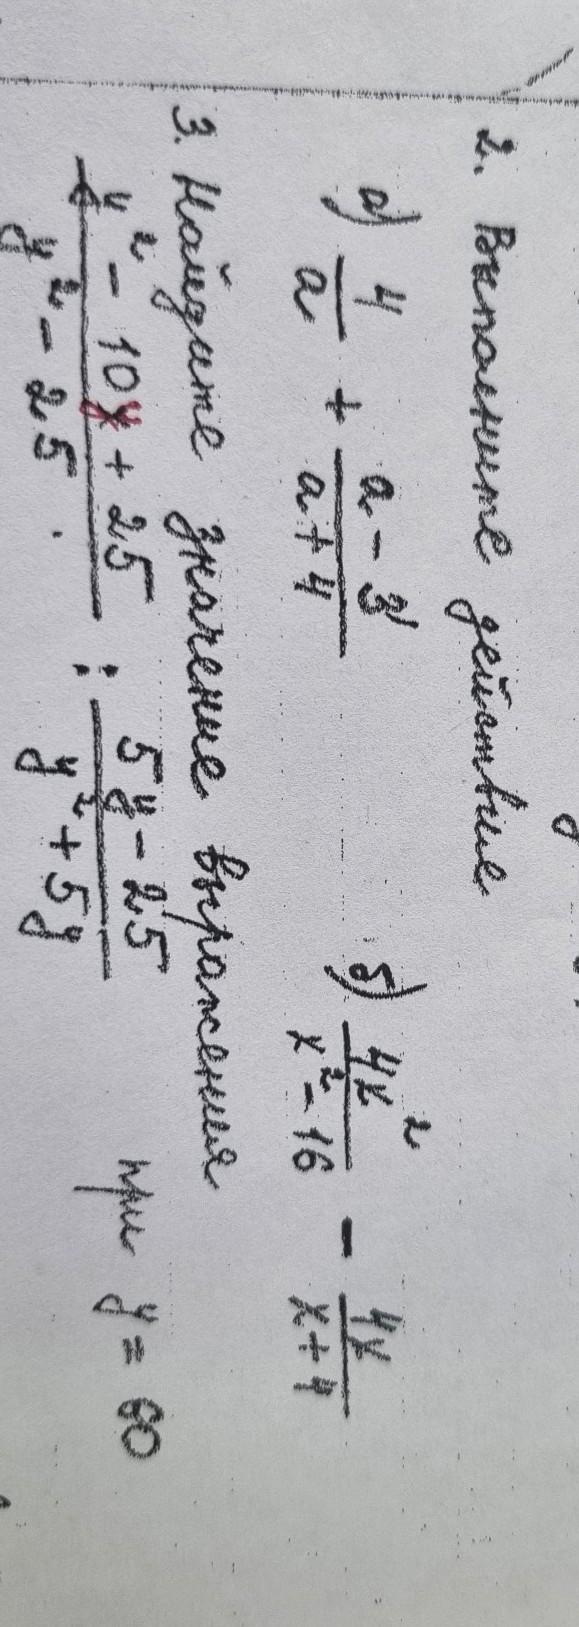 2. Выполните действие
а) 4/a + (a - 3)/(a + 4) б) 4x²/(x² - 16) - 4x/(x + 4)
3. Найдите значение выражения
(y² - 10y + 25)/(y² - 25) : (5y - 25)/(y² + 5y) при y = 60